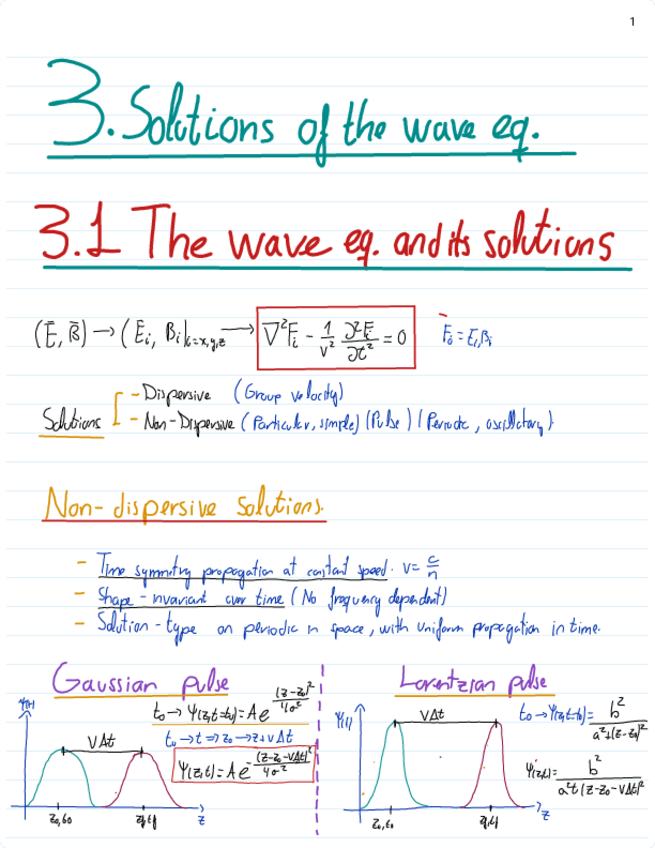 1
3. Solutions of the wave eq.
3.1 The wave eq. and its solutions
(Ē, B̄) → (Ei, Bi)i=x,y,z → ∇²Fi - 1/v² ∂²Fi/∂t² = 0 Fi = Ei, Bi
- Dispersive (Group velocity)
Solutions - Non-Dispersive (Particular, simple) (Pulse) | Periodic, oscillatory)
Non-dispersive solutions.
- Time symmetry propagation at constant speed. v = c/n
- Shape-invariant over time (No frequency dependent)
- Solution-type on periodic in space, with uniform propagation in time.
Gaussian pulse
Ψ(t)
t₀ → Ψ(z,t=t₀) = A e^(z-z₀)²/4σ²
VΔt
t₀ → t ⇒ z₀ → z + vΔt
Ψ(z,t) = A e^-(z-z₀-vΔt)²/4σ²
z₀, t₀
zf, tf
z
Lorentzian pulse
Ψ(t)
VΔt
t₀ → Ψ(z,t=t₀) = b²/a²+(z-z₀)²
Ψ(z,t) = b²/a²+(z-z₀-vΔt)²
z₀, t₀
zf, tf
z